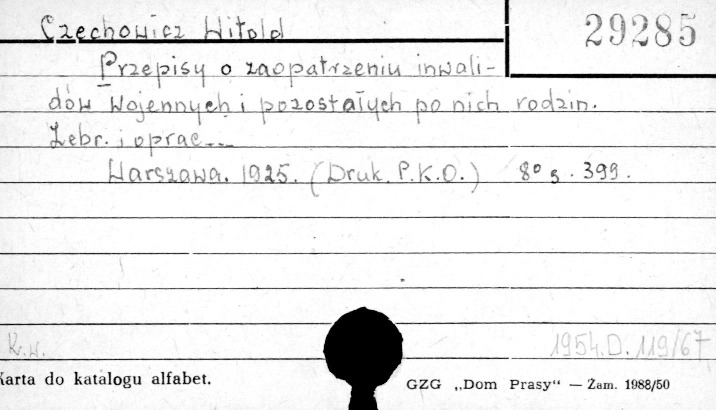 Czechowicz Witold
29285
Przepisy o zaopatrzeniu inwali-
dów wojennych i pozostałych po nich rodzin.
Zebr. i oprac...
Warszawa. 1925. (Druk. P.K.O.) 8° s. 399.
K.w.
1954.D. 119/67
Karta do katalogu alfabet.
GZG „Dom Prasy" — Zam. 1988/50